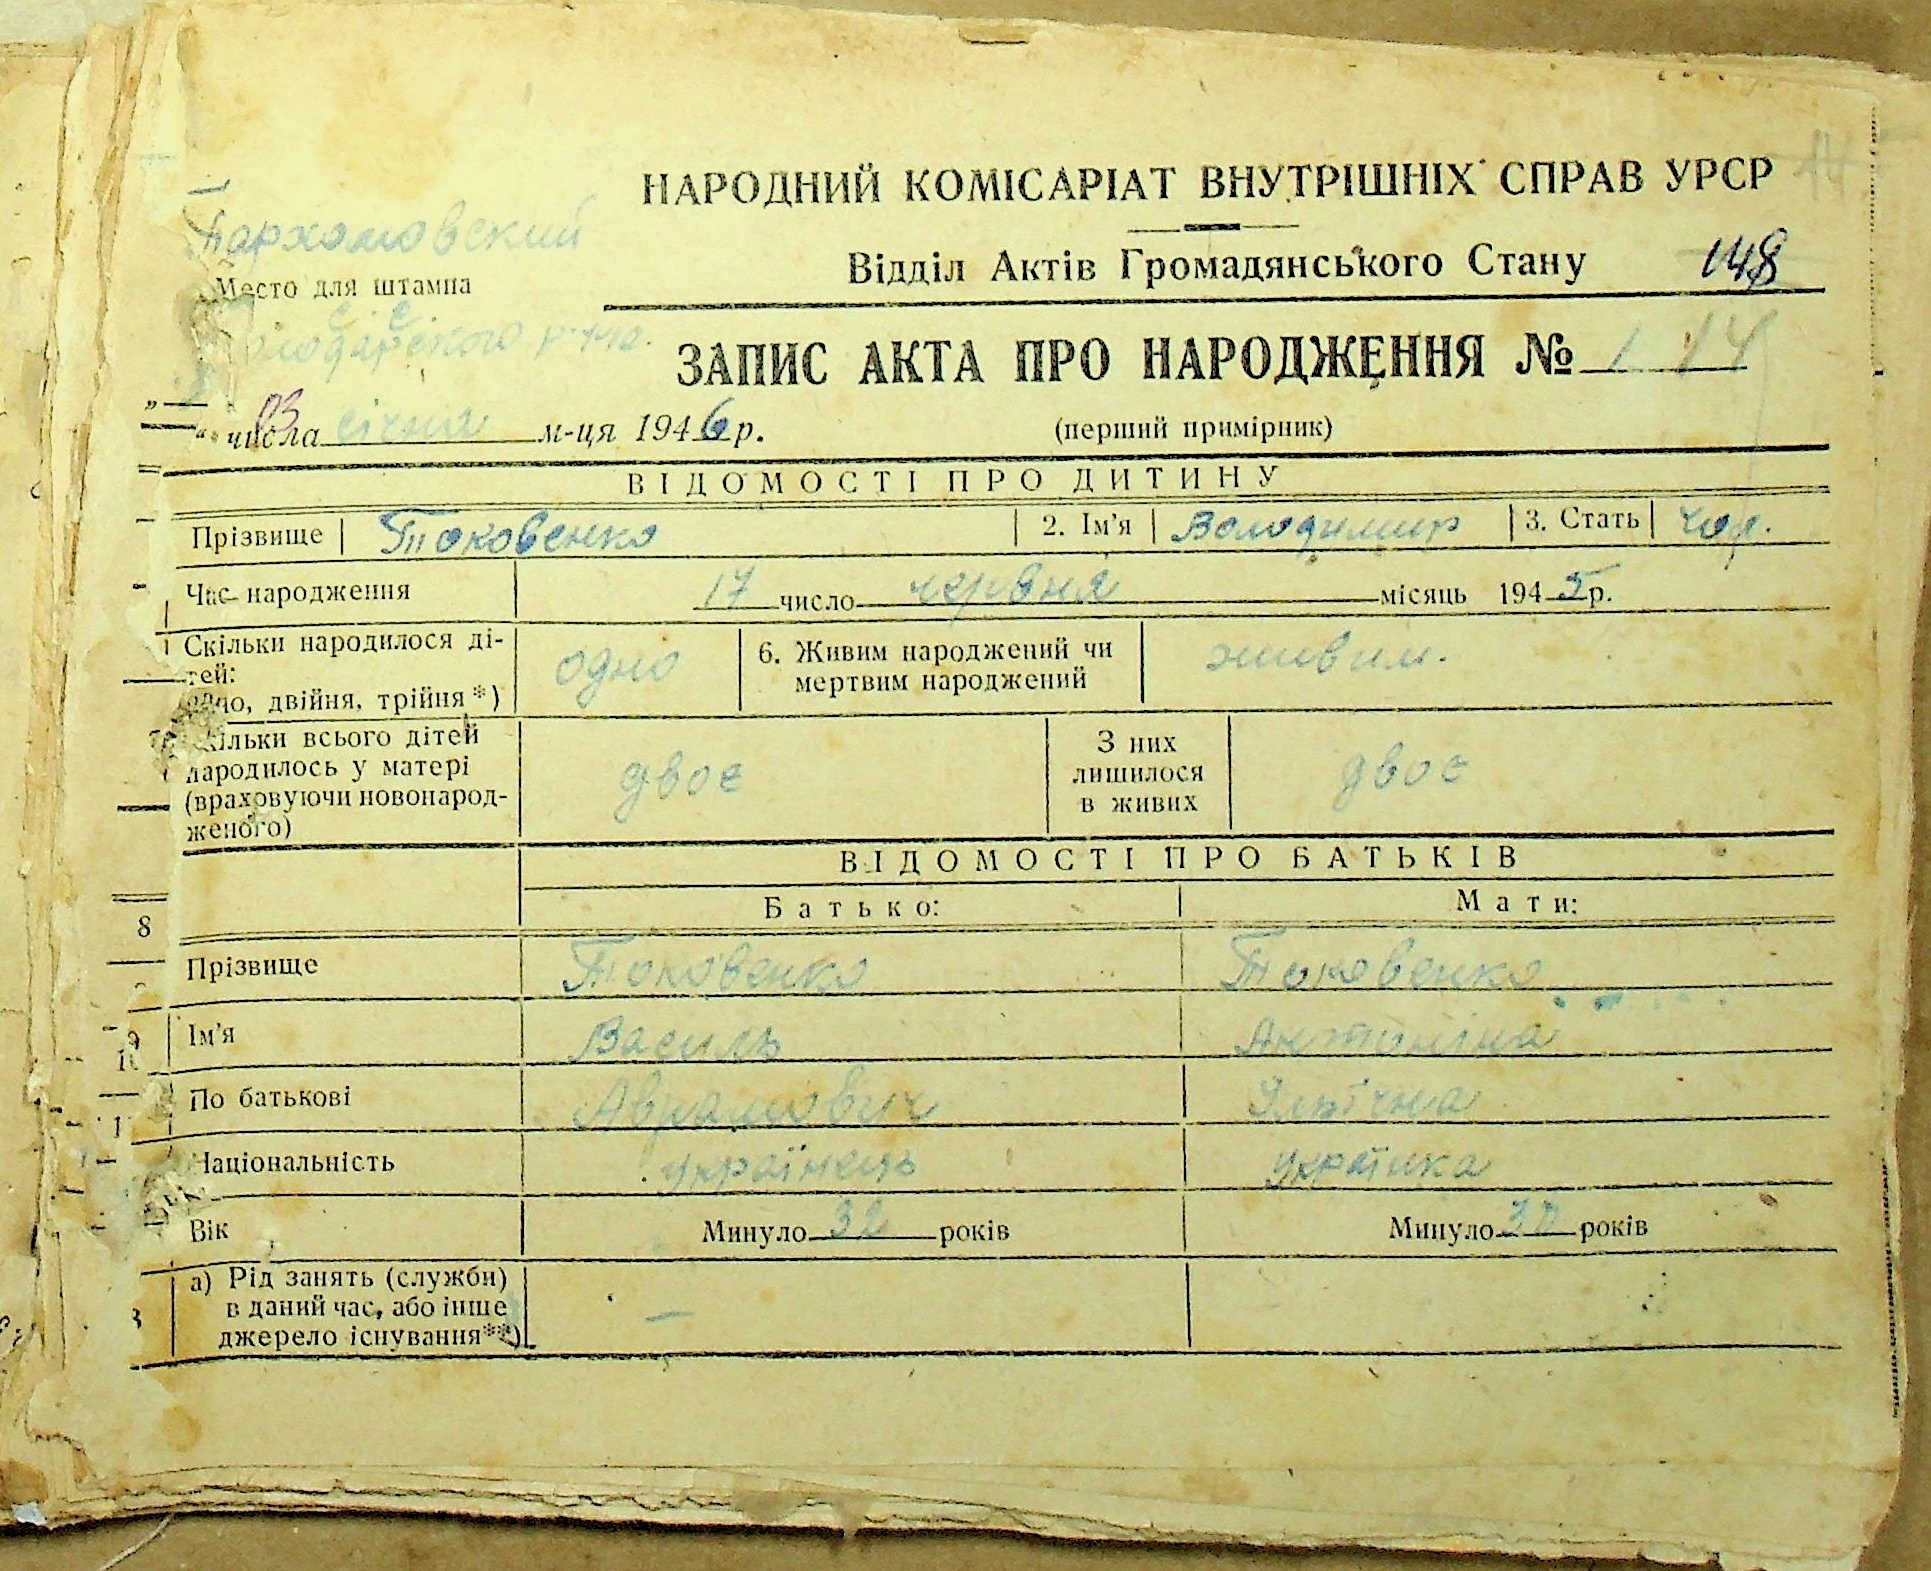 НАРОДНИЙ КОМІСАРІАТ ВНУТРІШНІХ СПРАВ УРСР 14
Пархомовский
Відділ Актів Громадянського Стану 148
Место для штампа
с с
ЗАПИС АКТА ПРО НАРОДЖЕННЯ № 14
03 числа січня м-ця 1946 р.
(перший примірник)
ВІДОМОСТІ ПРО ДИТИНУ
Прізвище Токовенко 2. Ім'я Володимир 3. Стать чол.
Час народження 17 число червня місяць 1945 р.
Скільки народилося ді-
тей:
двійня, трійня*)
одно
6. Живим народжений чи
мертвим народжений
живим.
всього дітей
народилось у матері
(враховуючи новонарод-
женого)
двоє
З них
лишилося
в живих
двоє
ВІДОМОСТІ ПРО БАТЬКІВ
Батько: Мати:
8
Прізвище Токовенко Токовенко
Ім'я Василь Антоніна
По батькові Аврамович Юлтічна
Національність українець українка
Вік Минуло 32 років Минуло років
а) Рід занять (служби)
в даний час, або інше
джерело існування**)
—